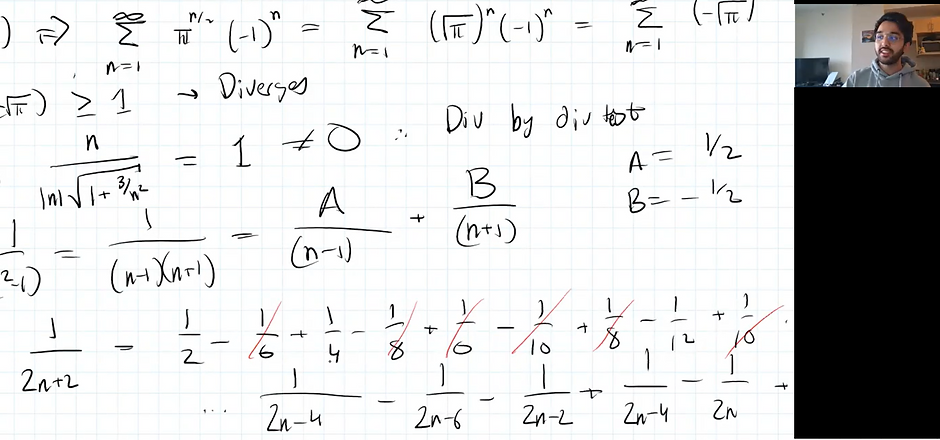 ) => ∞ Σ n=1 π^(n/2) (-1)^n = ∞ Σ n=1 (√π)^n (-1)^n = Σ n=1 (-√π)
-√π) ≥ 1 → Diverges
n / |n|√(1 + 3/n²) = 1 ≠ 0 ∴ Div by div test
A = 1/2
B = -1/2
1 / ²-1) = 1 / (n-1)(n+1) = A / (n-1) + B / (n+1)
1 / 2n+2 = 1/2 - 1/6 + 1/4 - 1/8 + 1/6 - 1/10 + 1/8 - 1/12 + 1/10 .
... 1 / 2n-4 - 1 / 2n-6 - 1 / 2n-2 + 1 / 2n-4 - 1 / 2n +